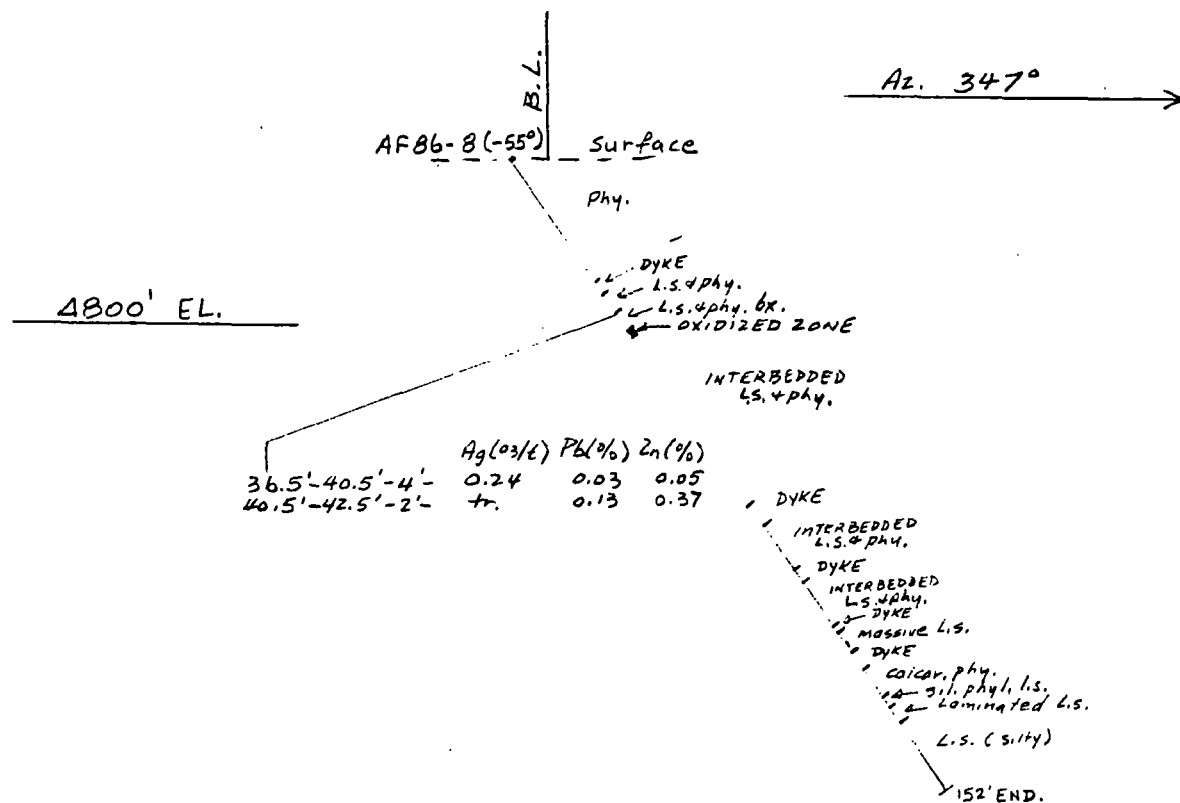 B.L.
Az. 347°
AF86-8 (-55°) Surface
Phy.
DYKE
L.S. & phy.
L.S. & phy. bx.
OXIDIZED ZONE
4800' EL.
INTERBEDDED
L.S. & phy.
Ag(oz/t) Pb(%) Zn(%)
36.5'-40.5'-4'- 0.24 0.03 0.05
40.5'-42.5'-2'- tr. 0.13 0.37
DYKE
INTERBEDDED
L.S. & phy.
DYKE
INTERBEDDED
L.S. & phy.
DYKE
massive L.S.
DYKE
calcar. phy.
sil. phyl. l.s.
Laminated L.S.
L.S. (silty)
152' END.